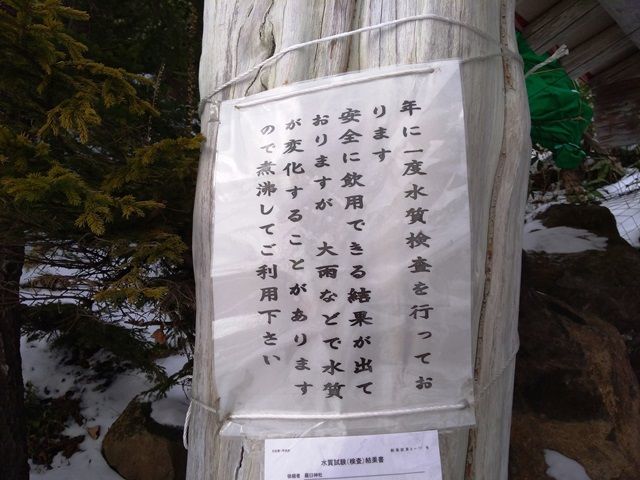 年に一度水質検査を行ってお
ります
安全に飲用できる結果が出て
おりますが 大雨などで水質
が変化することがあります
ので煮沸してご利用下さい
水質試験(検査)結果書
依頼者 羅臼神社